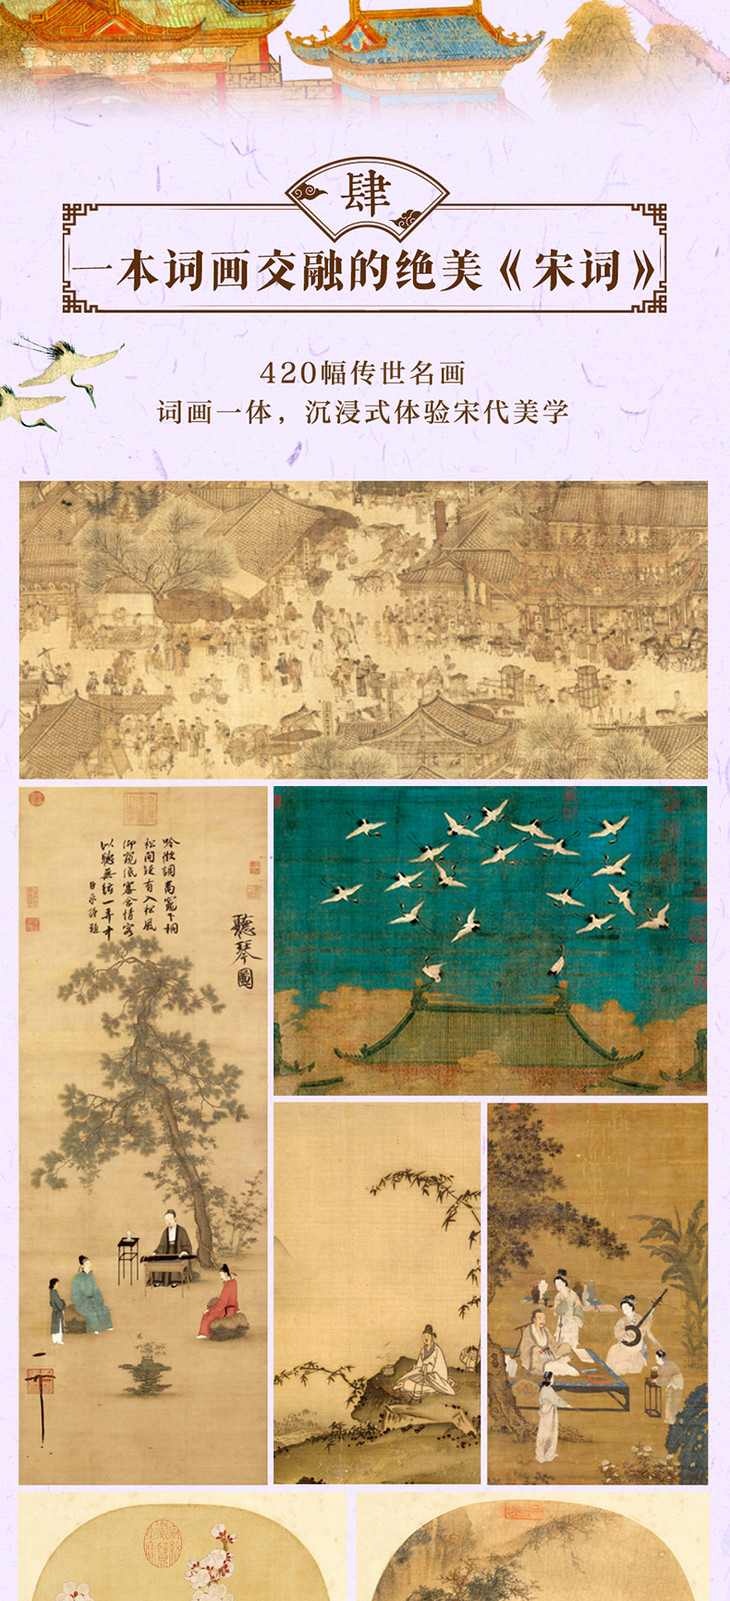 肆
一本词画交融的绝美《宋词》
420幅传世名画
词画一体，沉浸式体验宋代美学
吟徵调商灶下桐
松间疑有入松风
仰窥低审含情客
以听无弦一弄中
臣京谨题
聽琴圖